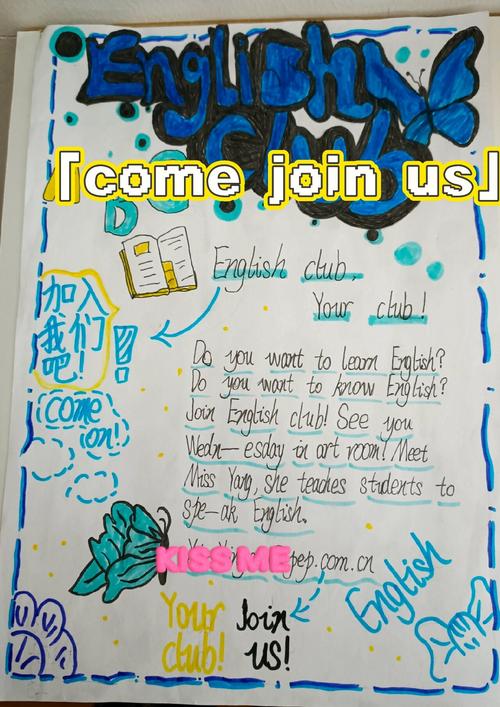 English
Club
「come join us」
D
English club,
Your club!
加入
我们
吧!
Come
on!
Do you want to learn English?
Do you want to know English?
Join English club! See you
Wedn—esday in art room! Meet
Miss Yang, she teaches students to
spe—ak English.
KISS ME pep.com.cn
English
Your
club!
Join
us!